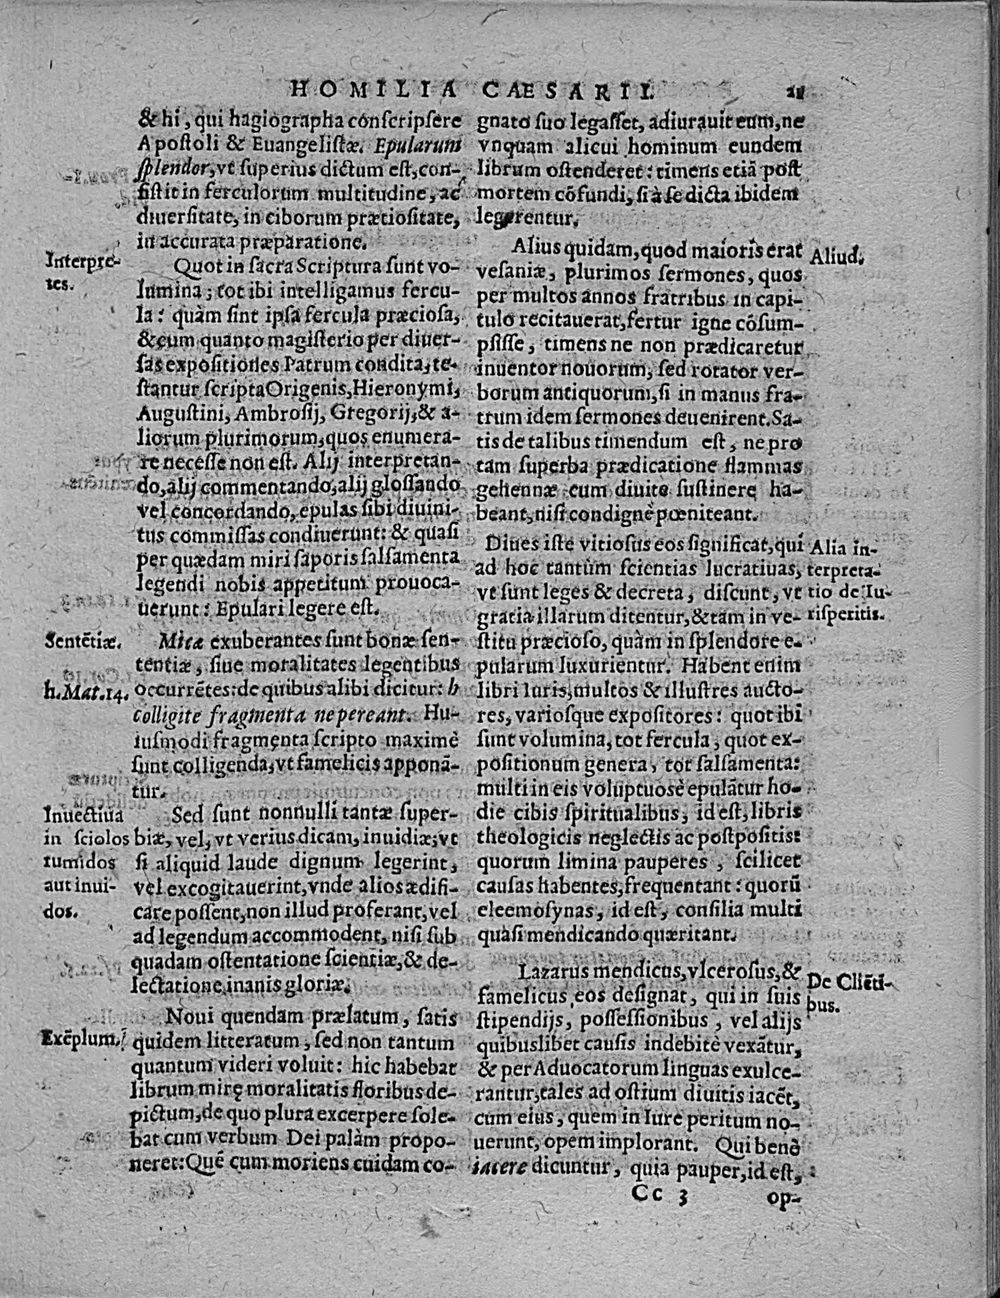 HOMILIA CAESARII. 21
& hi, qui hagiographa conscripsere
Apostoli & Euangelistæ. Epularum
splendor, vt superius dictum est, con-
sistit in ferculorum multitudine, ac
diuersitate, in ciborum prætiositate,
in accurata præparatione.
Interpre-
tes.
Quot in sacra Scriptura sunt vo-
lumina; tot ibi intelligamus fercu-
la: quàm sint ipsa fercula præciosa,
& cum quanto magisterio per diuer-
sas expositiones Patrum condita, te-
stantur scripta Origenis, Hieronymi,
Augustini, Ambrosij, Gregorij, & a-
liorum plurimorum, quos enumera-
re necesse non est. Alij interpretan-
do, alij commentando, alij glossando
vel concordando, epulas sibi diuini-
tus commissas condiuerunt: & quasi
per quædam miri saporis salsamenta
legendi nobis appetitum prouoca-
uerunt: Epulari legere est.
Sentẽtiæ.
Micæ exuberantes sunt bonæ sen-
tentiæ, siue moralitates legentibus
h. Mat. 14.
occurrẽtes: de quibus alibi dicitur: h
colligite fragmenta ne pereant. Hu-
iusmodi fragmenta scripto maximè
sunt colligenda, vt famelicis apponã-
tur.
Inuectiua
in sciolos
tumidos
aut inui-
dos.
Sed sunt nonnulli tantæ super-
biæ, vel, vt verius dicam, inuidiæ, vt
si aliquid laude dignum legerint,
vel excogitauerint, vnde alios ædifi-
care possent, non illud proferant, vel
ad legendum accommodent, nisi sub
quadam ostentatione scientiæ, & de-
lectatione inanis gloriæ.
Exẽplum.
Noui quendam prælatum, satis
quidem litteratum, sed non tantum
quantum videri voluit: hic habebat
librum mirę moralitatis floribus de-
pictum, de quo plura excerpere sole-
bat cum verbum Dei palàm propo-
neret: Quẽ cum moriens cuidam co-
gnato suo legasset, adiurauit eum, ne
vnquam alicui hominum eundem
librum ostenderet: timens etiã post
mortem cõfundi, si à se dicta ibidem
legerentur.
Aliud.
Alius quidam, quod maioris erat
vesaniæ, plurimos sermones, quos
per multos annos fratribus in capi-
tulo recitauerat, fertur igne cõsum-
psisse, timens ne non prædicaretur
inuentor nouorum, sed rotator ver-
borum antiquorum, si in manus fra-
trum idem sermones deuenirent. Sa-
tis de talibus timendum est, ne pro
tam superba prædicatione flammas
gehennæ cum diuite sustinere ha-
beant, nisi condignè pœniteant.
Alia in-
terpreta-
tio de Iu-
risperitis.
Diues iste vitiosus eos significat, qui
ad hoc tantùm scientias lucratiuas,
vt sunt leges & decreta, discunt, vt
gratia illarum ditentur, & tam in ve-
stitu præcioso, quàm in splendore e-
pularum luxurientur. Habent enim
libri Iuris, multos & illustres aucto-
res, variosque expositores: quot ibi
sunt volumina, tot fercula, quot ex-
positionum genera, tot salsamenta:
multi in eis voluptuosè epulãtur ho-
die cibis spiritualibus, id est, libris
theologicis neglectis ac postpositis:
quorum limina pauperes, scilicet
causas habentes, frequentant: quorũ
eleemosynas, id est, consilia multi
quasi mendicando quæritant.
De Cliẽti-
bus.
Lazarus mendicus, vlcerosus, &
famelicus, eos designat, qui in suis
stipendijs, possessionibus, vel alijs
quibuslibet causis indebitè vexãtur,
& per Aduocatorum linguas exulce-
rantur, tales ad ostium diuitis iacẽt,
cum eius, quem in Iure peritum no-
uerunt, opem implorant. Qui benè
iacere dicuntur, quia pauper, id est,
Cc 3 op-